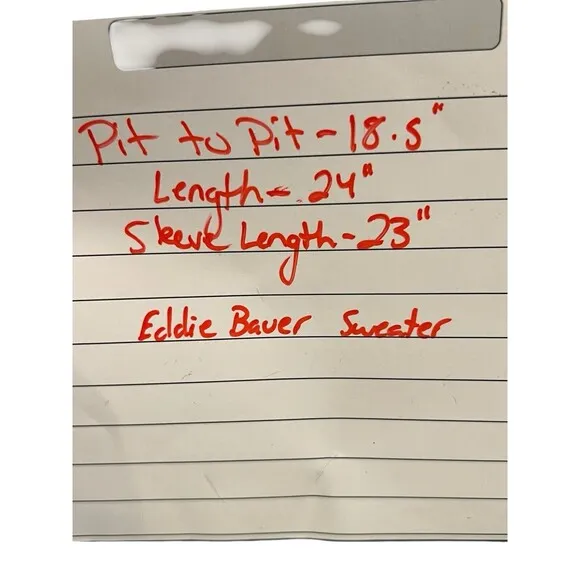 Pit to Pit - 18.5"
Length - 24"
Sleeve Length - 23"
Eddie Bauer Sweater